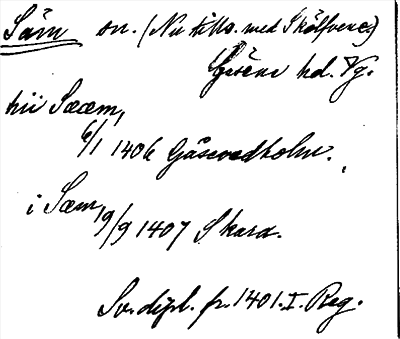 Säm sn. (Nu tills. med Skölfvene)
Gäsene hd. Vg.
hii Sææm,
6/1 1406 Gåsevedholm.
i Sæm, 19/9 1407 Skara.
Sv. dipl. fr. 1401. I. Reg.